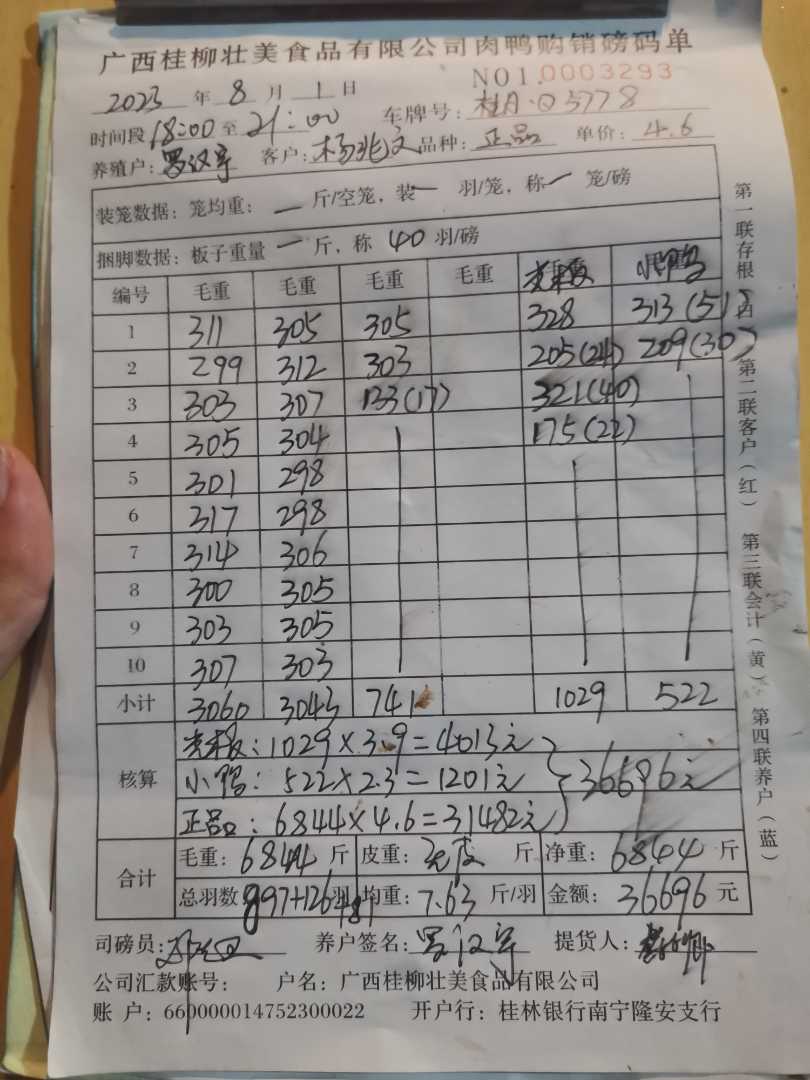 广西桂柳壮美食品有限公司肉鸭购销磅码单
NO1.0003293
2023 年 8 月 1 日
时间段 18:00 至 21:00 车牌号: 桂A·Q5778
养殖户: 罗汉宇 客户: 杨兆文 品种: 正品 单价: 4.6
装笼数据: 笼均重: 一 斤/空笼, 装 一 羽/笼, 称 一 笼/磅
捆脚数据: 板子重量 一 斤, 称 40 羽/磅
编号 毛重 毛重 毛重 毛重 小鸭
1 311 305 305 328 313(51)
2 299 312 303 205(24) 209(30)
3 303 307 133(17) 321(40)
4 305 304 175(22)
5 301 298
6 317 298
7 314 306
8 300 305
9 303 305
10 307 303
小计 3060 3043 741 1029 522
核算
1029×3.9=4013元
小鸭: 522×2.3=1201元
正品: 6844×4.6=31482元
36696元
合计
毛重: 6844 斤 皮重: 斤 净重: 6844 斤
总羽数 897+126 羽 +81 均重: 7.63 斤/羽 金额: 36696 元
司磅员: 养户签名: 罗汉宇 提货人:
公司汇款账号: 户名: 广西桂柳壮美食品有限公司
账 户: 660000014752300022 开户行: 桂林银行南宁隆安支行
第一联存根(白) 第二联客户(红) 第三联会计(黄) 第四联养户(蓝)